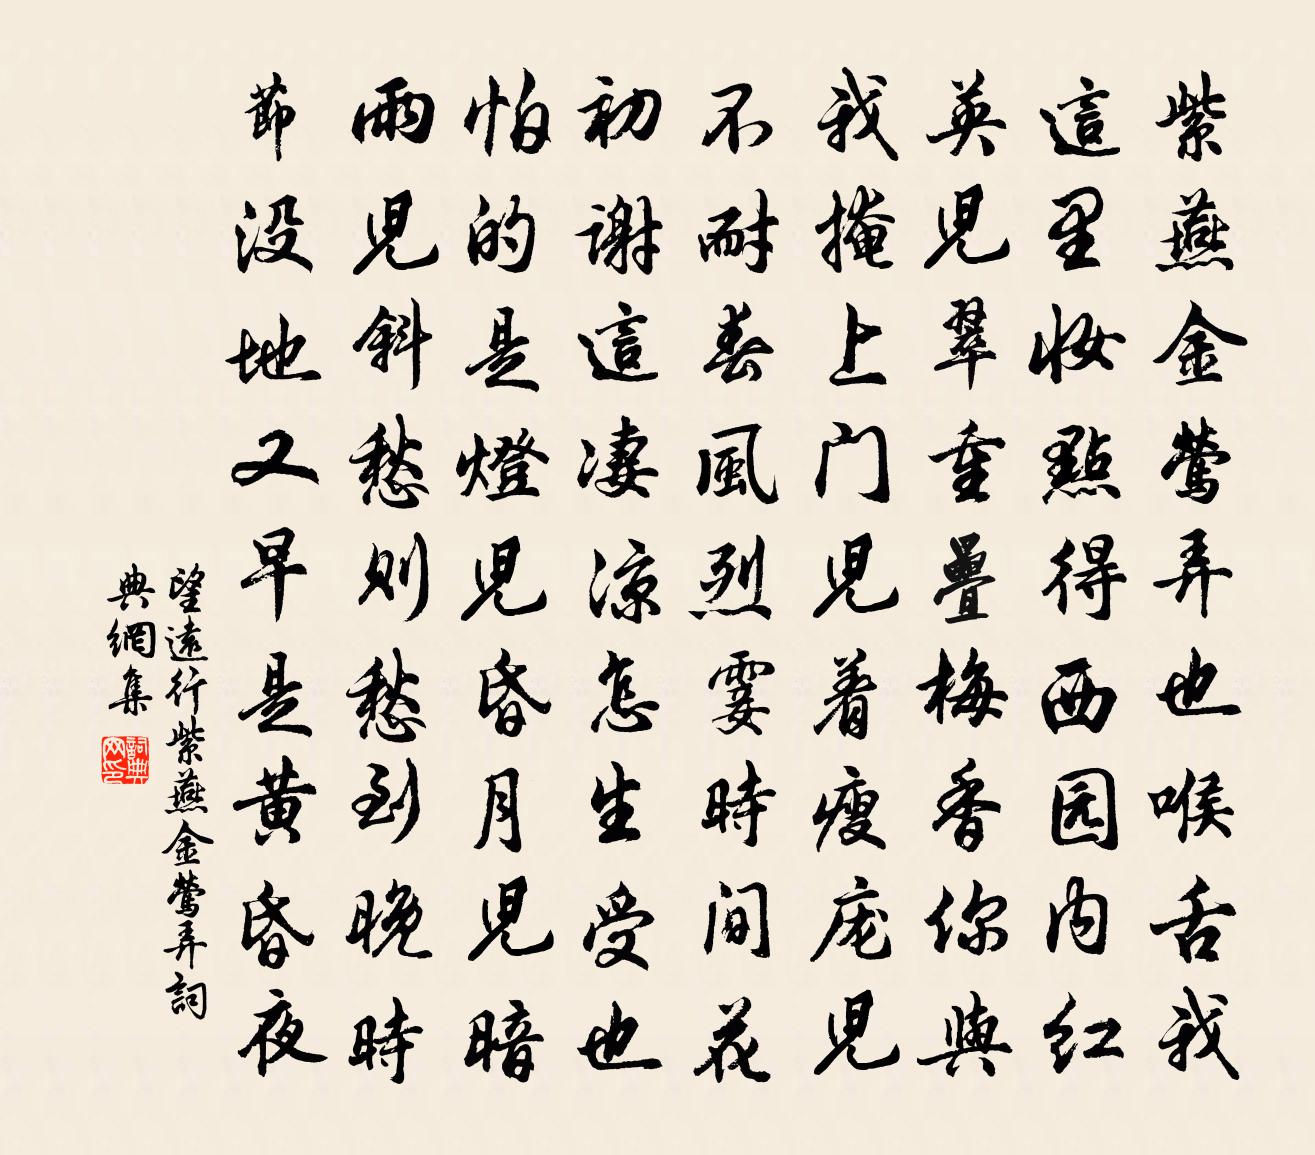 紫燕金鶯弄也喉舌我
這里妝點得西园内紅
英兒翠重疊梅香你與
我掩上门兒着瘦庞兒
不耐春風烈霎時间花
初謝這凄凉怎生受也
怕的是燈兒昏月兒暗
雨兒斜愁則愁到晚時
節没地又早是黃昏夜
望遠行紫燕金鶯弄詞
典網集
詞典网印